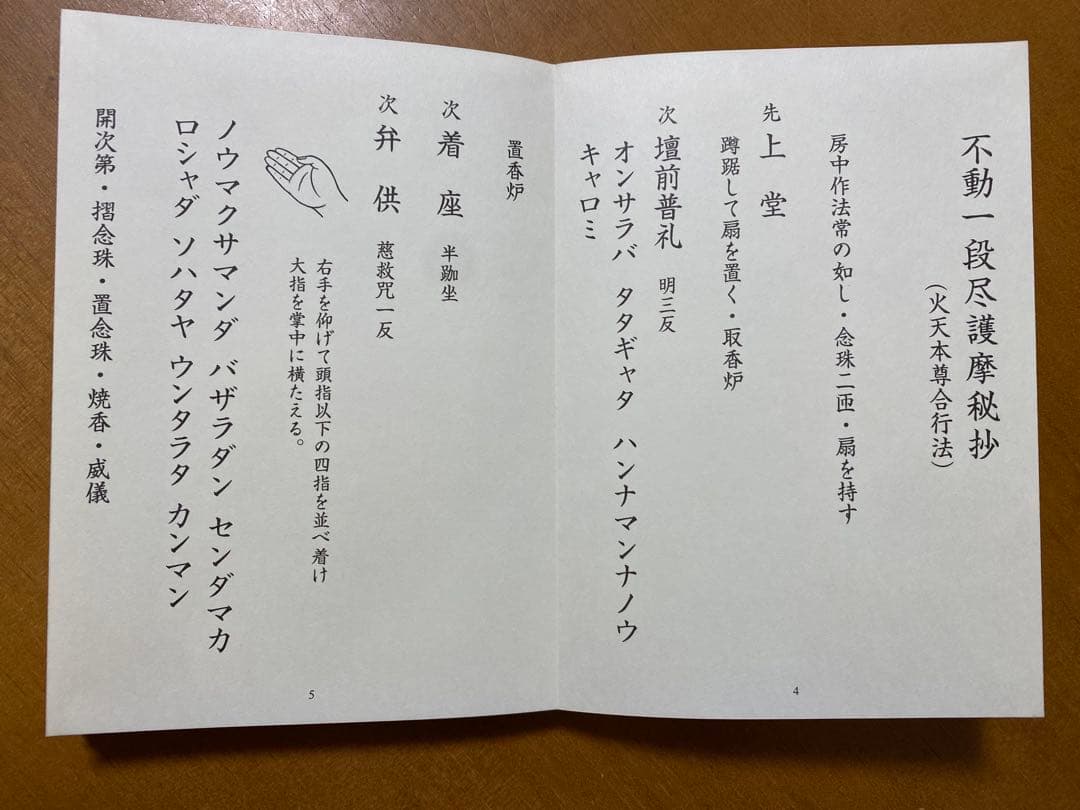 不動一段尽護摩秘抄
(火天本尊合行法)
房中作法常の如し・念珠二匝・扇を持す
先 上堂
蹲踞して扇を置く・取香炉
次 壇前普礼 明三反
オンサラバ タタギャタ ハンナマンナノウ
キャロミ
4
置香炉
次 着座 半跏坐
次 弁供 慈救咒一反
右手を仰げて頭指以下の四指を並べ着け
大指を掌中に横たえる。
ノウマクサマンダ バザラダン センダマカ
ロシャダ ソハタヤ ウンタラタ カンマン
開次第・摺念珠・置念珠・焼香・威儀
5